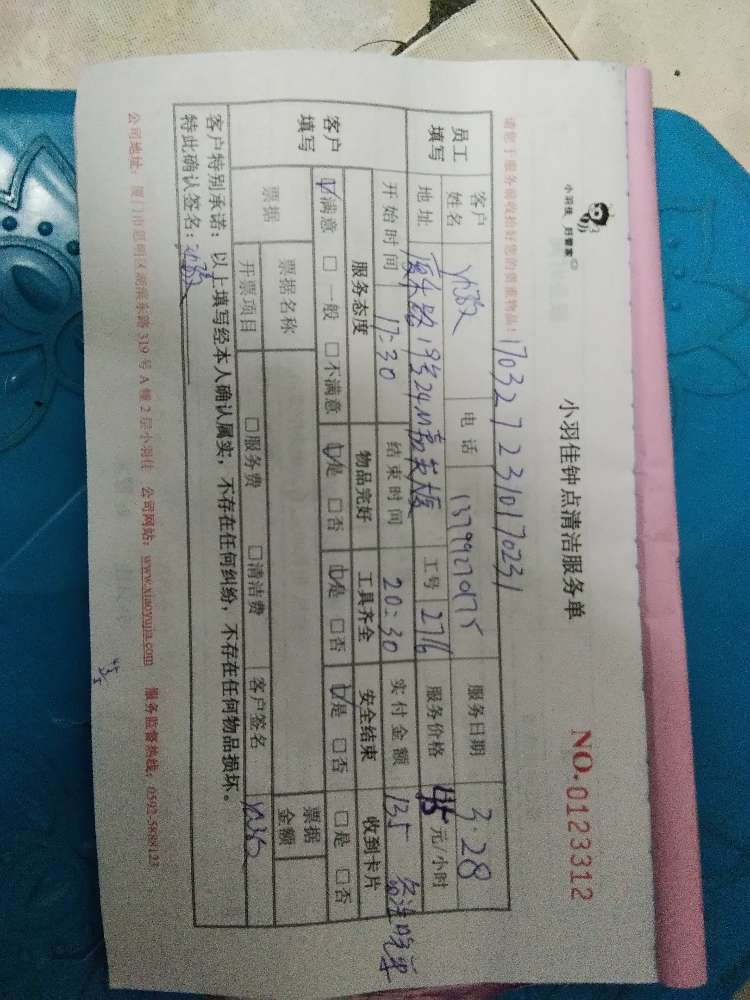 小羽佳 好管家
小羽佳钟点清洁服务单
NO.0123312
1703272310170231
请您于服务前收拾好您的贵重物品!
员工填写 客户姓名 电话 服务日期 3.28
地址 19号 工号 2716 服务价格 45 元/小时
开始时间 17:30 结束时间 20:30 实付金额 135
客户填写 服务态度 物品完好 工具齐全 安全结束 收到卡片
☑满意 □一般 □不满意 ☑是 □否 ☑是 □否 ☑是 □否 □是 □否
票据 票据名称 票据金额
开票项目 □服务费 □清洁费 客户签名
客户特别承诺:以上填写经本人确认属实,不存在任何纠纷,不存在任何物品损坏。
特此确认签名:
公司地址:厦门市思明区湖滨东路319号A幢2层小羽佳 公司网站:www.xiaoyujia.com 服务监督热线:0592-5888123